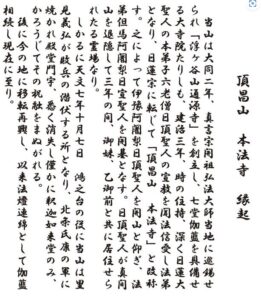 頂昌山　本法寺　縁起
当山は大同二年、真言宗開祖弘法大師当地に巡錫せ
られ「浮ヶ谷山通源寺」を創立し、七堂伽藍を具備せ
る大寺院たりしも、建治三年、時の住持、深く日蓮大
聖人の本弟子六老僧日頂聖人の宣教を聞き信受し法弟
となり、日蓮宗に転じて「頂昌山　本法寺」と改称
す。之によって伊豫阿闍梨日頂聖人を開山と仰ぎ、法
弟但馬阿闍梨日宣聖人を開基となす。日頂聖人が真間
山を退隠して三年の間、御妹、乙御前と共に居住せら
れたる霊場なり。
しかるに天文七年十月七日　鴻之台の役に当山は里
見義弘が敗兵の潜伏する所となり、北条氏康の軍に
焼かれ殿堂門宇、悉く消失し僅かに釈迦如来堂のみ、
かろうじてその祝融をまぬがれる。
後に今の地に移転再興し、以来法燈連綿として伽藍
相続し現在に至り。